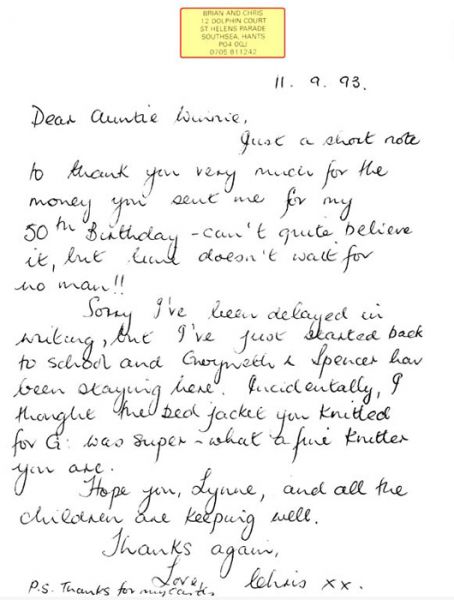 BRIAN AND CHRIS
12 DOLPHIN COURT
ST HELENS PARADE
SOUTHSEA, HANTS
PO4 0QJ
0705 811242
11.9.93.
Dear Auntie Winnie,
Just a short note
to thank you very much for the
money you sent me for my
50th Birthday - can't quite believe
it, but time doesn't wait for
no man!!
Sorry I've been delayed in
writing, but I've just started back
to school and Gwyneth & Spencer hav
been staying here. Incidentally, I
thought the bed jacket you knitted
for G. was super - what a fine knitter
you are.
Hope you, Lynne, and all the
children are keeping well.
Thanks again,
Love, Chris xx.
P.S. Thanks for my cards